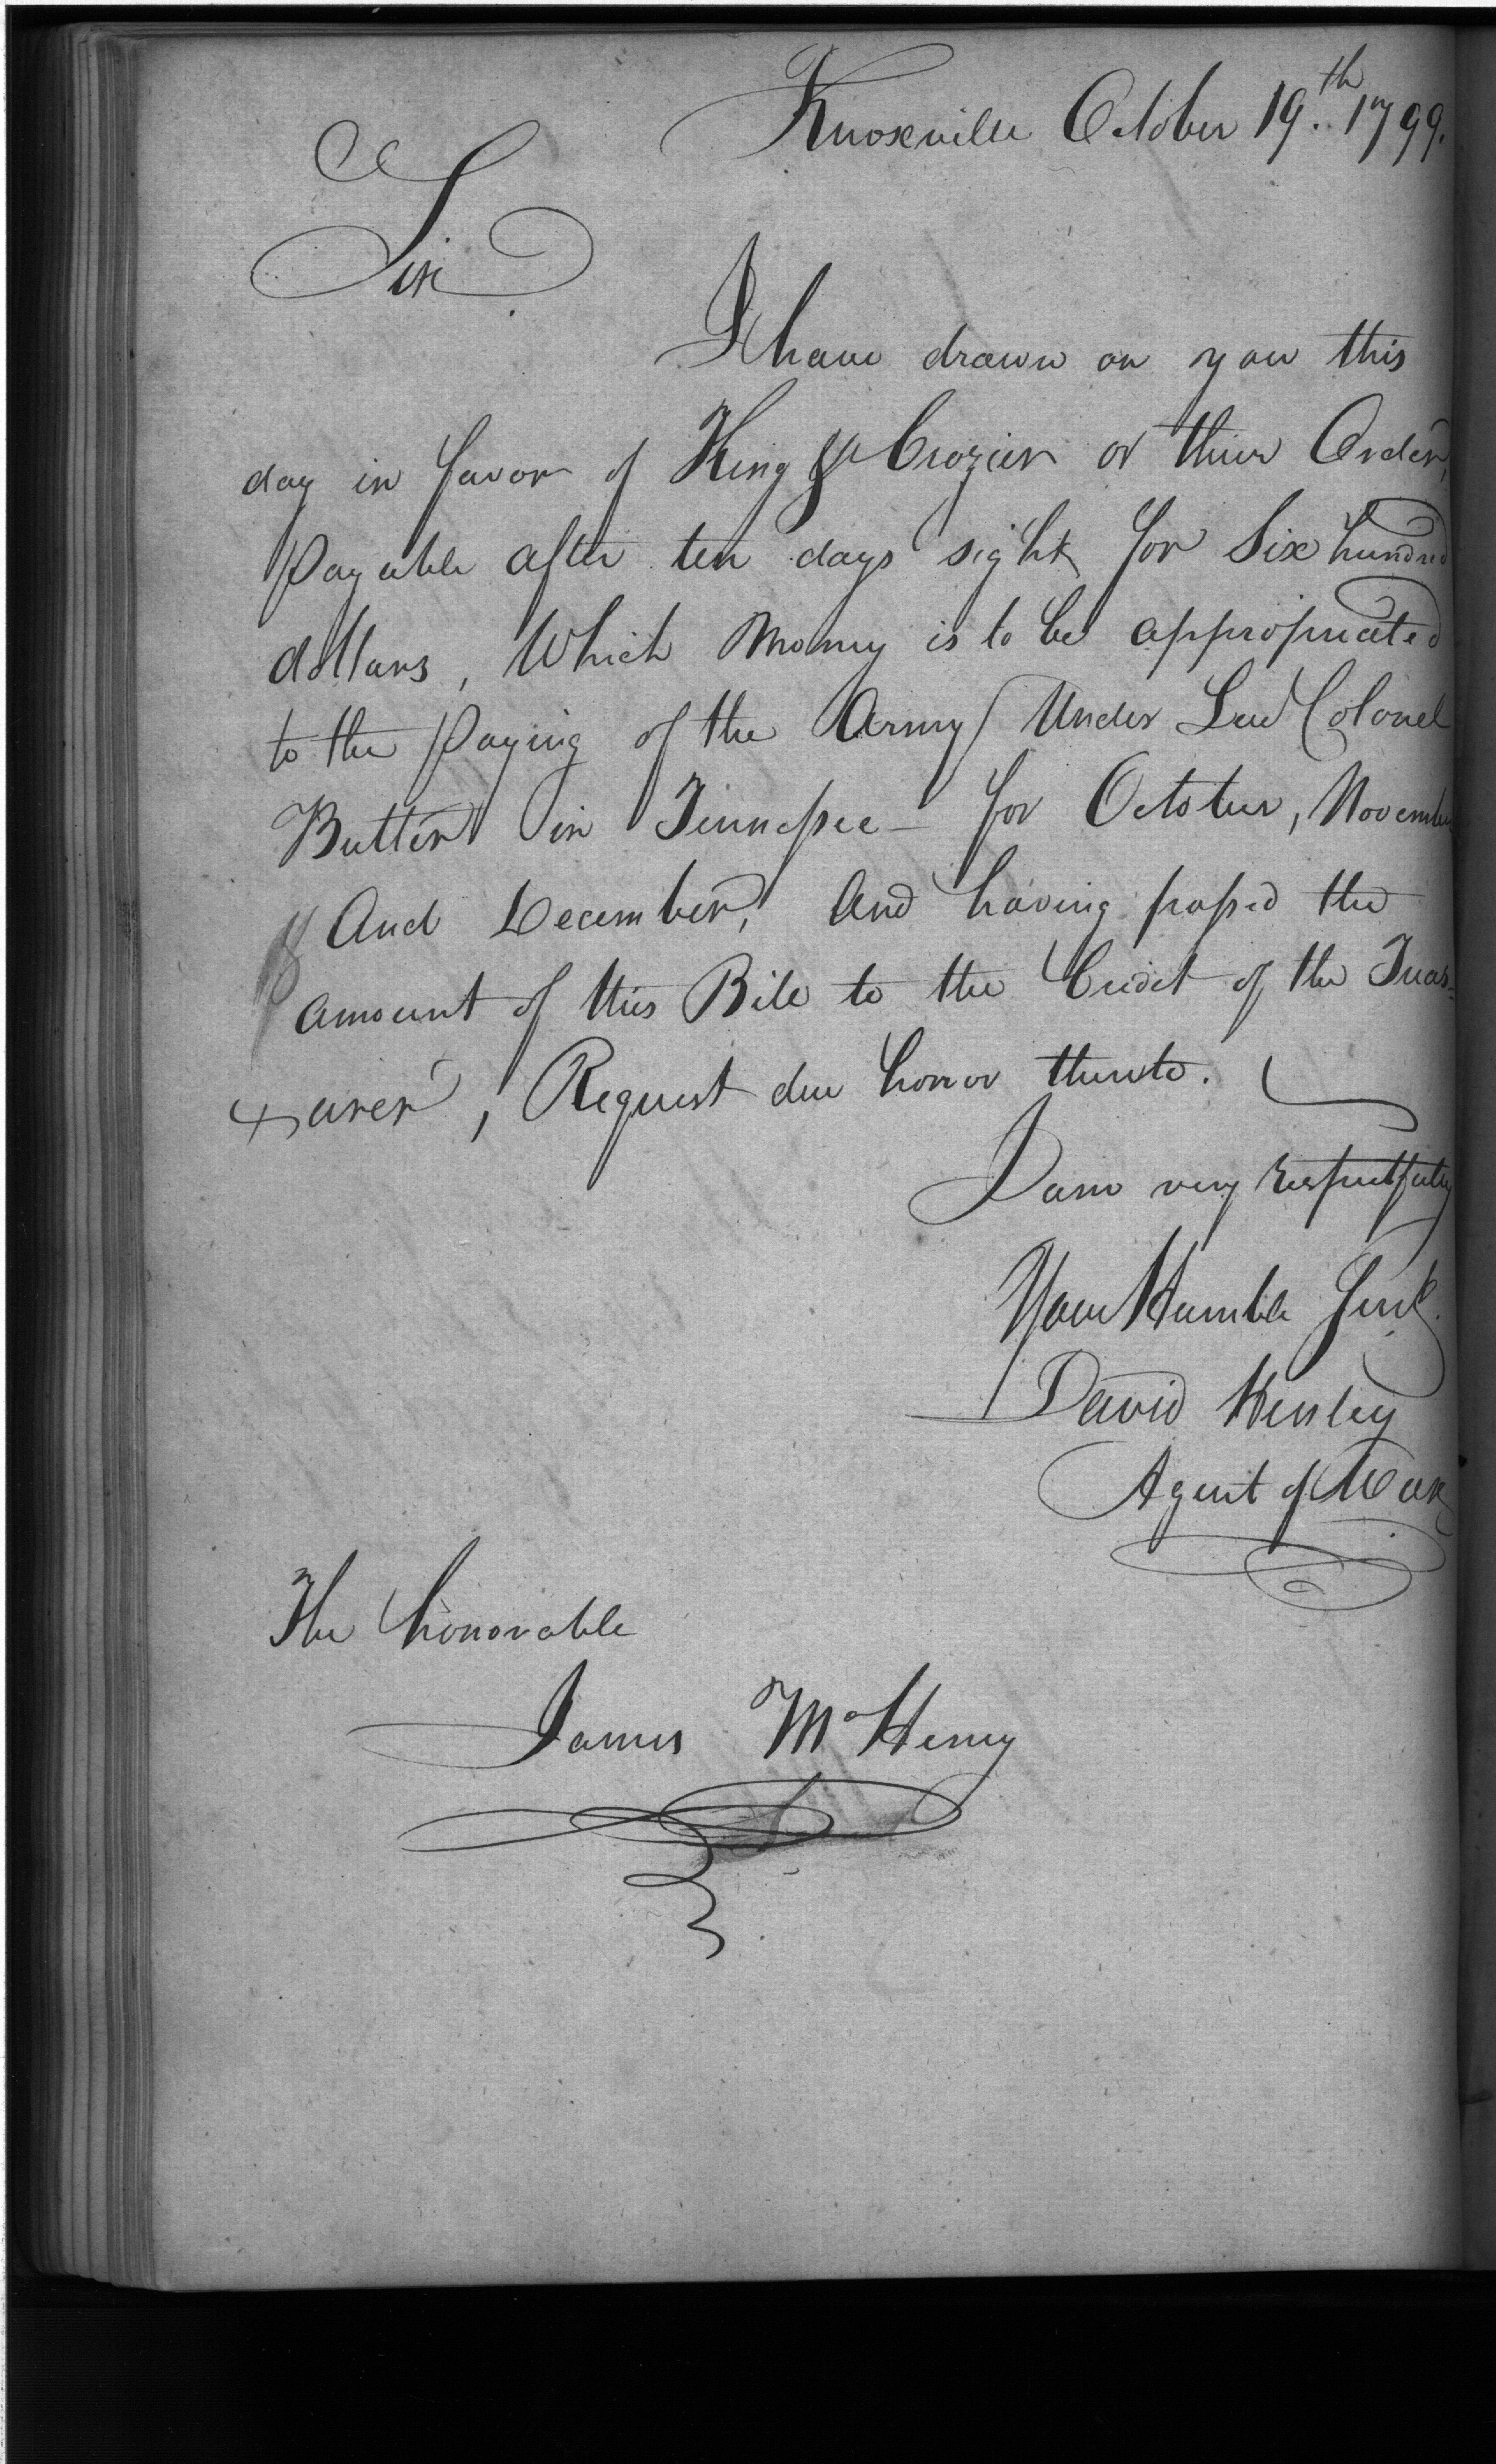 Knoxville October 19.th 1799.
Sir
I have drawn on you this
day in favor of King & Crozier or thier Order,
Payable after ten days sight for Six hundred
dollars, Which Money is to be appropriated
to the Paying of the Army Under Lieu Colonel
Butler in Tennessee - for October, November
And December, And having passed the
amount of this Bill to the Credit of the Treas-
urer, Request due honor thereto.
I am very respectfully
Your Humble Servt.
David Henley
Agent of War
The honorable
James McHenry